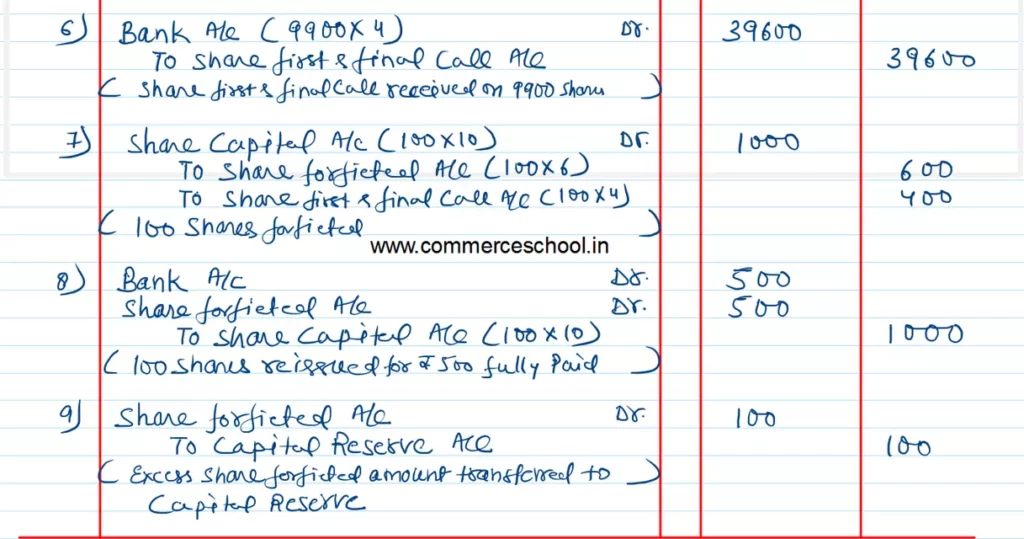 6) Bank A/c (9900X4) Dr. 39600
To Share first & final Call A/c 39600
( Share first & final Call received on 9900 Shares )
7) Share Capital A/c (100X10) Dr. 1000
To Share forfieted A/c (100X6) 600
To Share first & final Call A/c (100X4) 400
( 100 Shares forfieted )
www.commerceschool.in
8) Bank A/c Dr. 500
Share forfieted A/c Dr. 500
To Share Capital A/c (100X10) 1000
( 100 Shares reissued for ₹ 500 fully Paid )
9) Share forfieted A/c Dr. 100
To Capital Reserve A/c 100
( Excess Share forfieted amount transferred to )
Capital Reserve